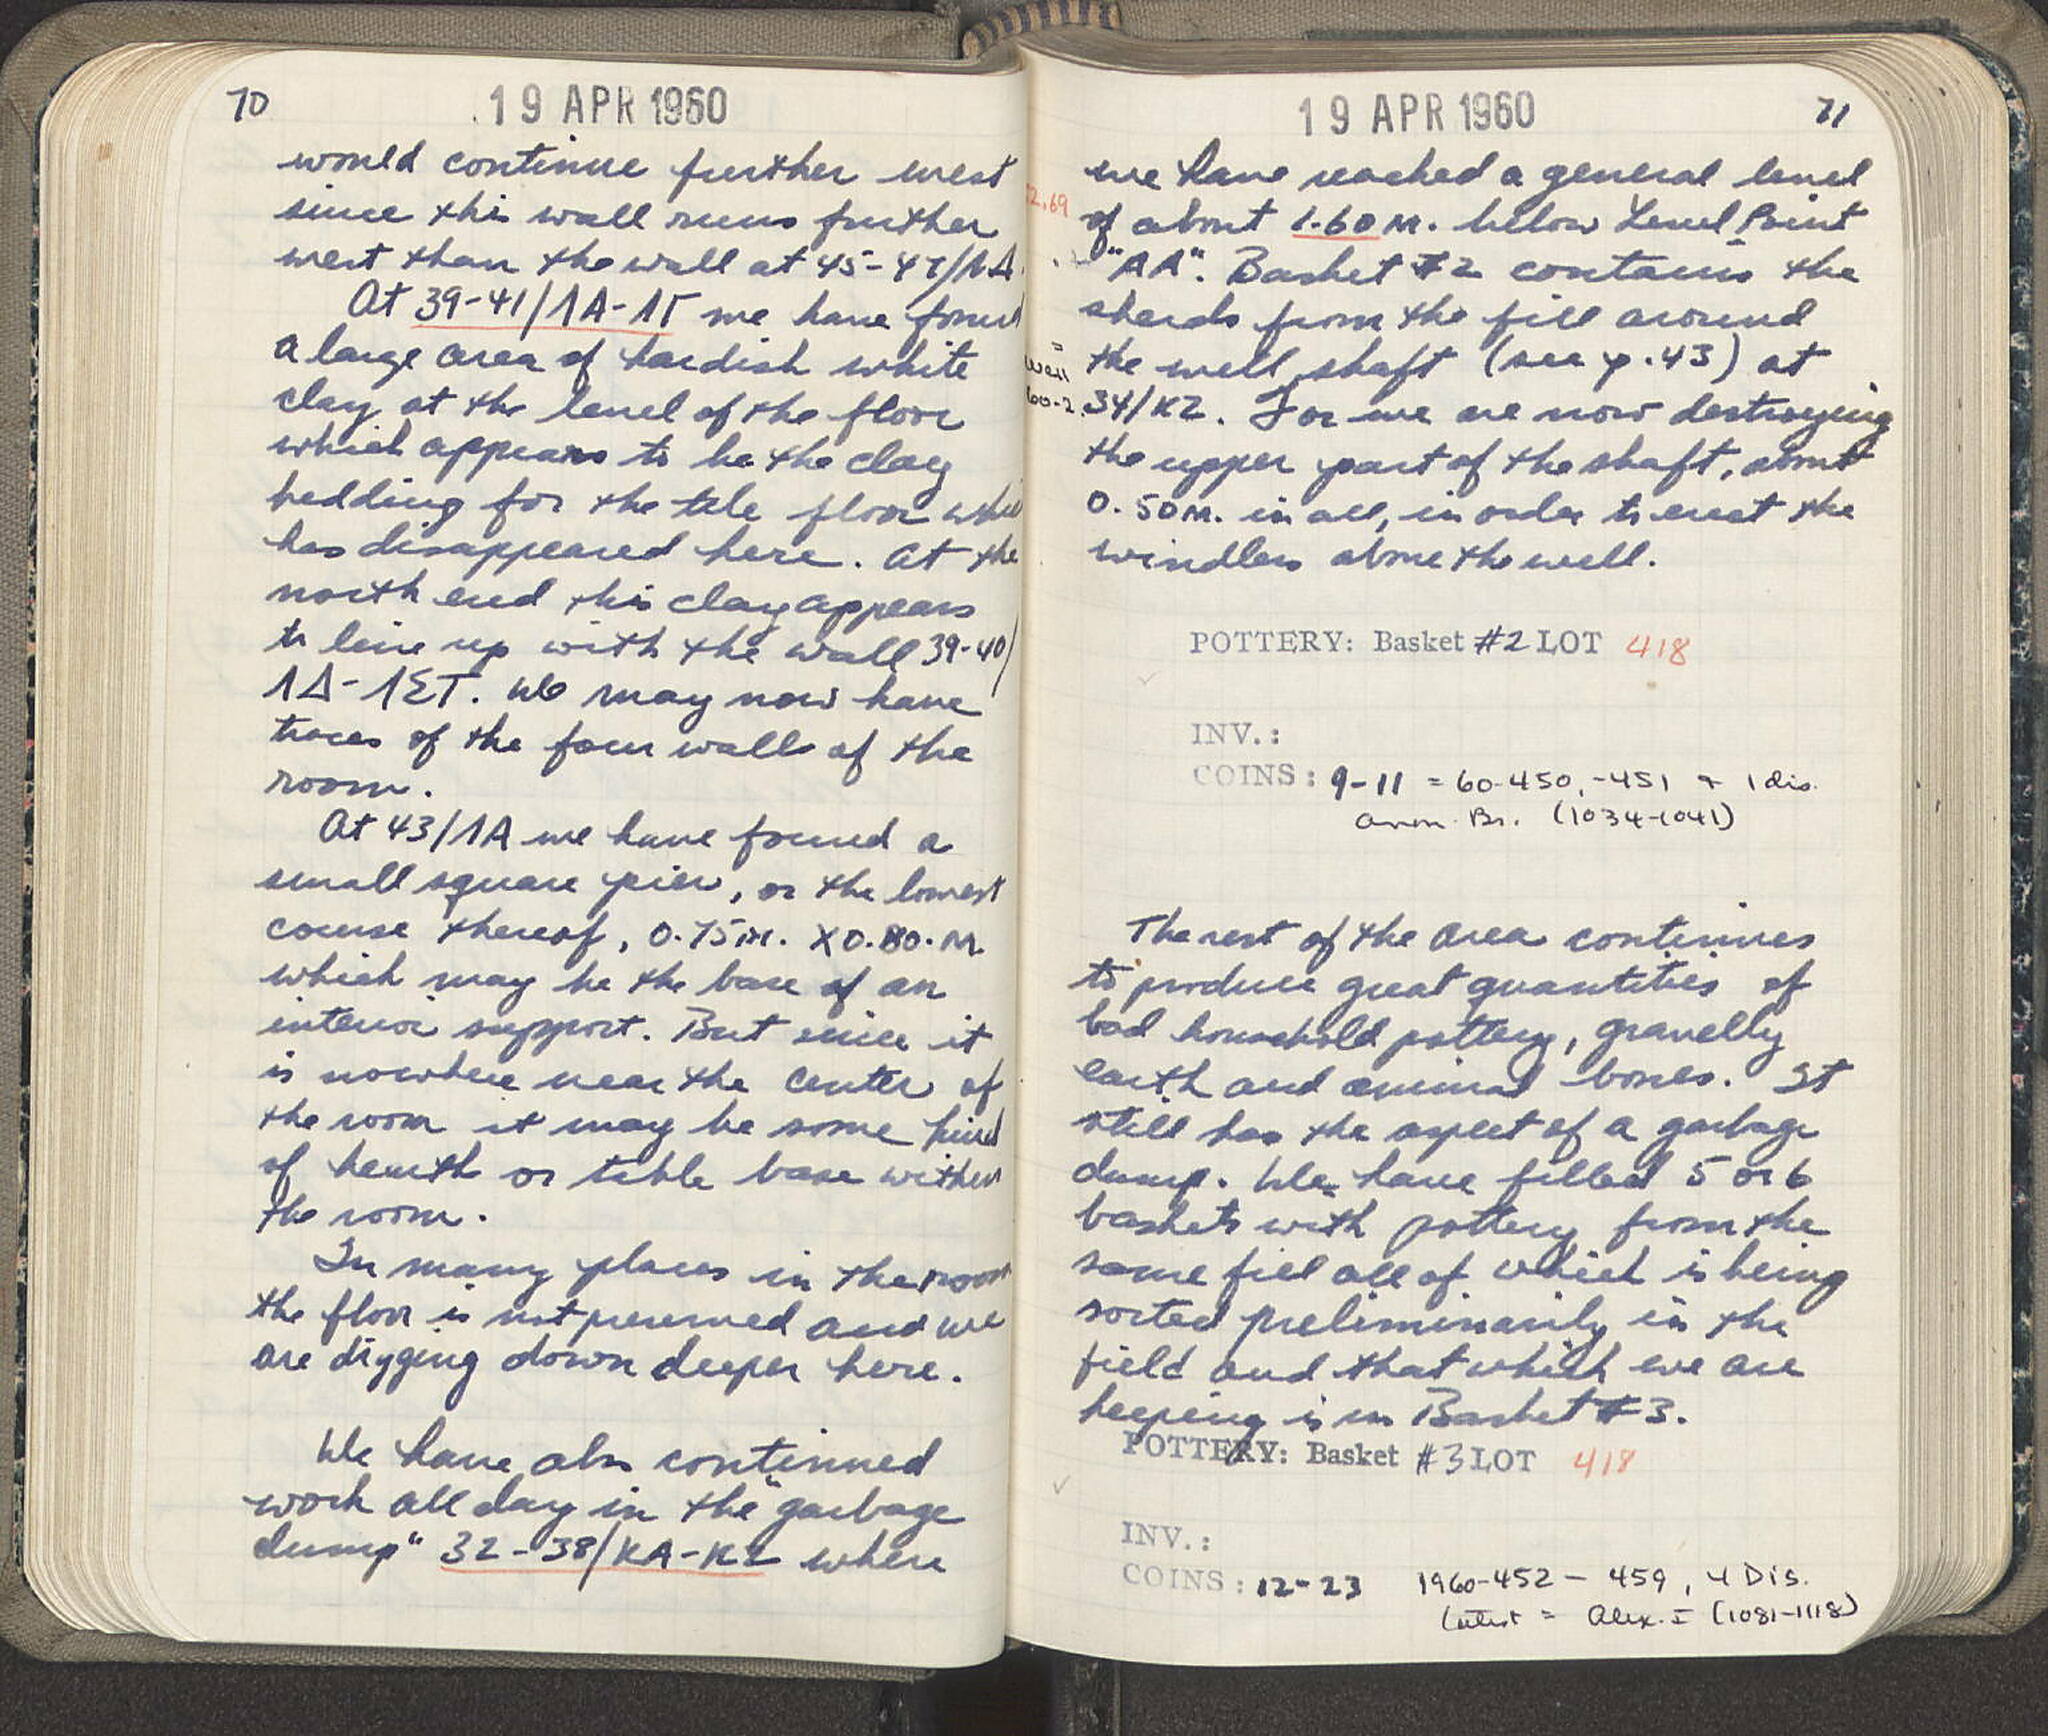 70
19 APR 1960
would continue further west
since this wall runs further
west than the wall at 45-47/ΛA.
At 39-41/ΛA-ΛΓ we have found
a large area of hardish white
clay at the level of the floor
which appears to be the clay
bedding for the tile floor whi
has disappeared here. At the
north end this clay appears
to line up with the wall 39-40/
ΛΔ-ΛΣΤ. We may now have
traces of the four walls of the
room.
At 43/ΛA we have found a
small square pier, or the lowest
course thereof, 0.75m. X 0.80.M
which may be the base of an
interior support. But since it
is nowhere near the center of
the room it may be some kind
of hearth or table base within
the room.
In many places in the room
the floor is not preserved and we
are digging down deeper here.
We have also continued
work all day in the "garbage
dump" 32-38/KA-KZ where
19 APR 1960
71
we have reached a general level
2.69
of about 1.60 M. below Level Point
"AA". Basket #2 contains the
sherds from the fill around
the well shaft (see p.43) at
= well
60-2
34/KZ. For we are now destroying
the upper part of the shaft, about
0.50M. in all, in order to erect the
windlass above the well.
POTTERY: Basket #2 LOT 418
INV.:
COINS: 9-11 = 60-450, -451 + 1 dis.
Anon. Br. (1034-1041)
The rest of the area continues
to produce great quantities of
bad household pottery, gravelly
earth and animal bones. It
still has the aspect of a garbage
dump. We have filled 5 or 6
baskets with pottery from the
same fill all of which is being
sorted preliminarily in the
field and that which we are
keeping is in Basket #3.
POTTERY: Basket #3 LOT 418
INV.:
COINS: 12-23 1960-452 - 459, 4 Dis.
Latest = Alex. I (1081-1118)